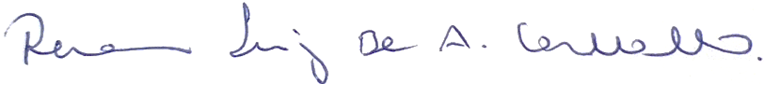 Renan Luiz De A. Carvalho.